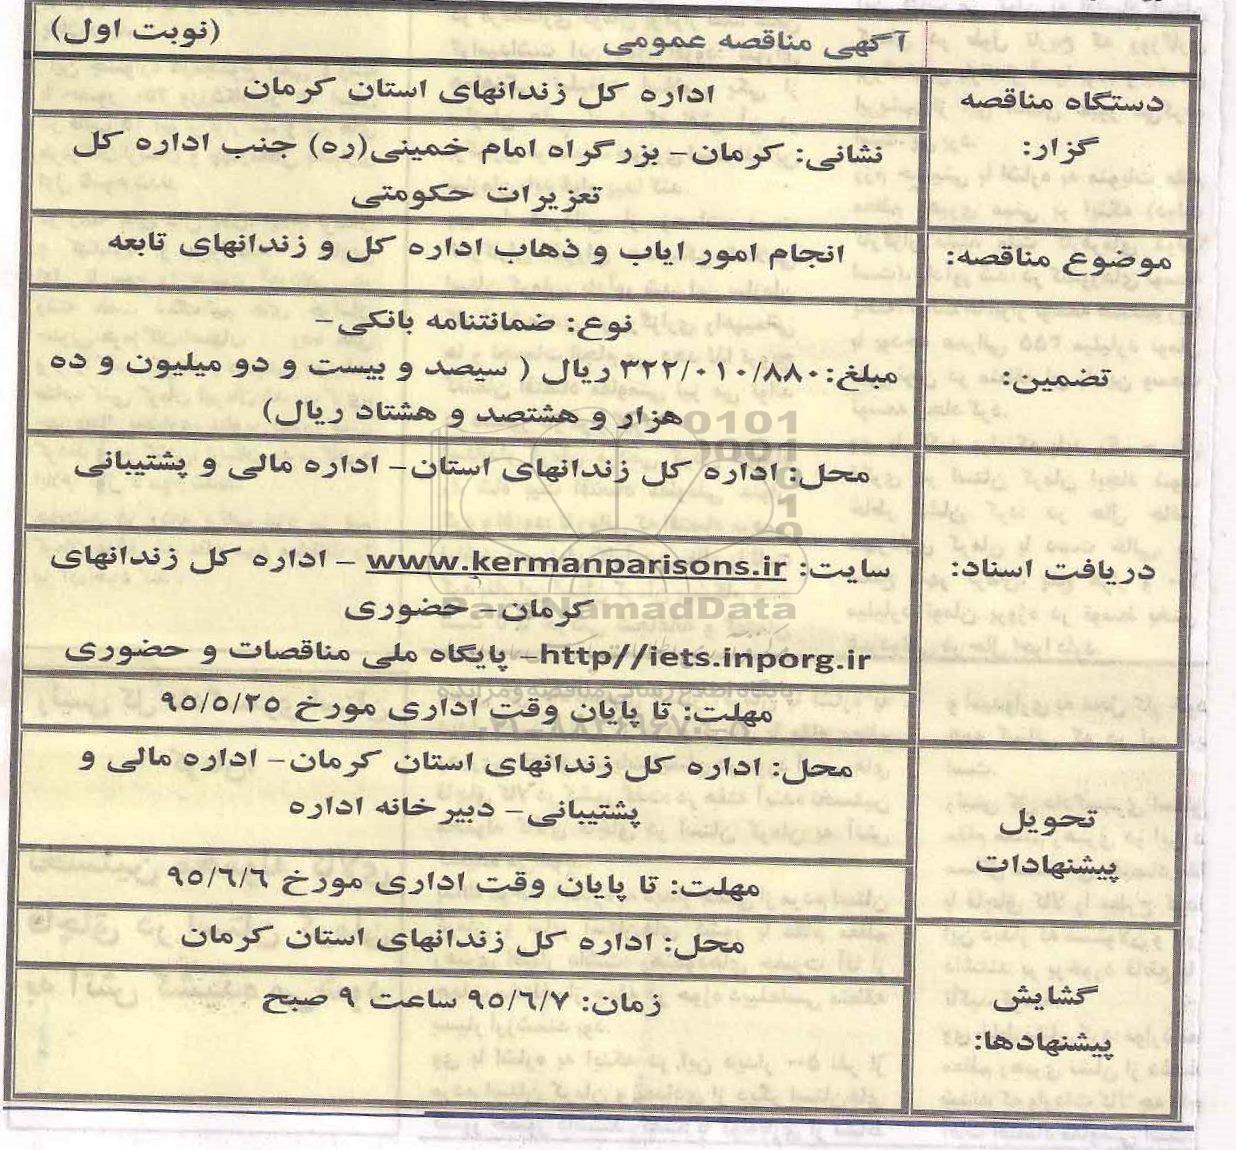 آگهی مناقصه عمومی (نوبت اول)
دستگاه مناقصه
گزار:
اداره کل زندانهای استان کرمان
نشانی: کرمان- بزرگراه امام خمینی(ره) جنب اداره کل
تعزیرات حکومتی
موضوع مناقصه:
انجام امور ایاب و ذهاب اداره کل و زندانهای تابعه
تضمین:
نوع: ضمانتنامه بانکی-
مبلغ:۳۲۲/۰۱۰/۸۸۰ ریال ( سیصد و بیست و دو میلیون و ده
هزار و هشتصد و هشتاد ریال)
دریافت اسناد:
محل: اداره کل زندانهای استان- اداره مالی و پشتیبانی
سایت: www.kermanparisons.ir - اداره کل زندانهای
کرمان- حضوری
http//iets.inporg.ir- پایگاه ملی مناقصات و حضوری
مهلت: تا پایان وقت اداری مورخ ۹۵/۵/۲۵
تحویل
پیشنهادات
محل: اداره کل زندانهای استان کرمان- اداره مالی و
پشتیبانی- دبیرخانه اداره
مهلت: تا پایان وقت اداری مورخ ۹۵/۶/۶
گشایش
پیشنهادها:
محل: اداره کل زندانهای استان کرمان
زمان: ۹۵/۶/۷ ساعت ۹ صبح
ParsNamadData